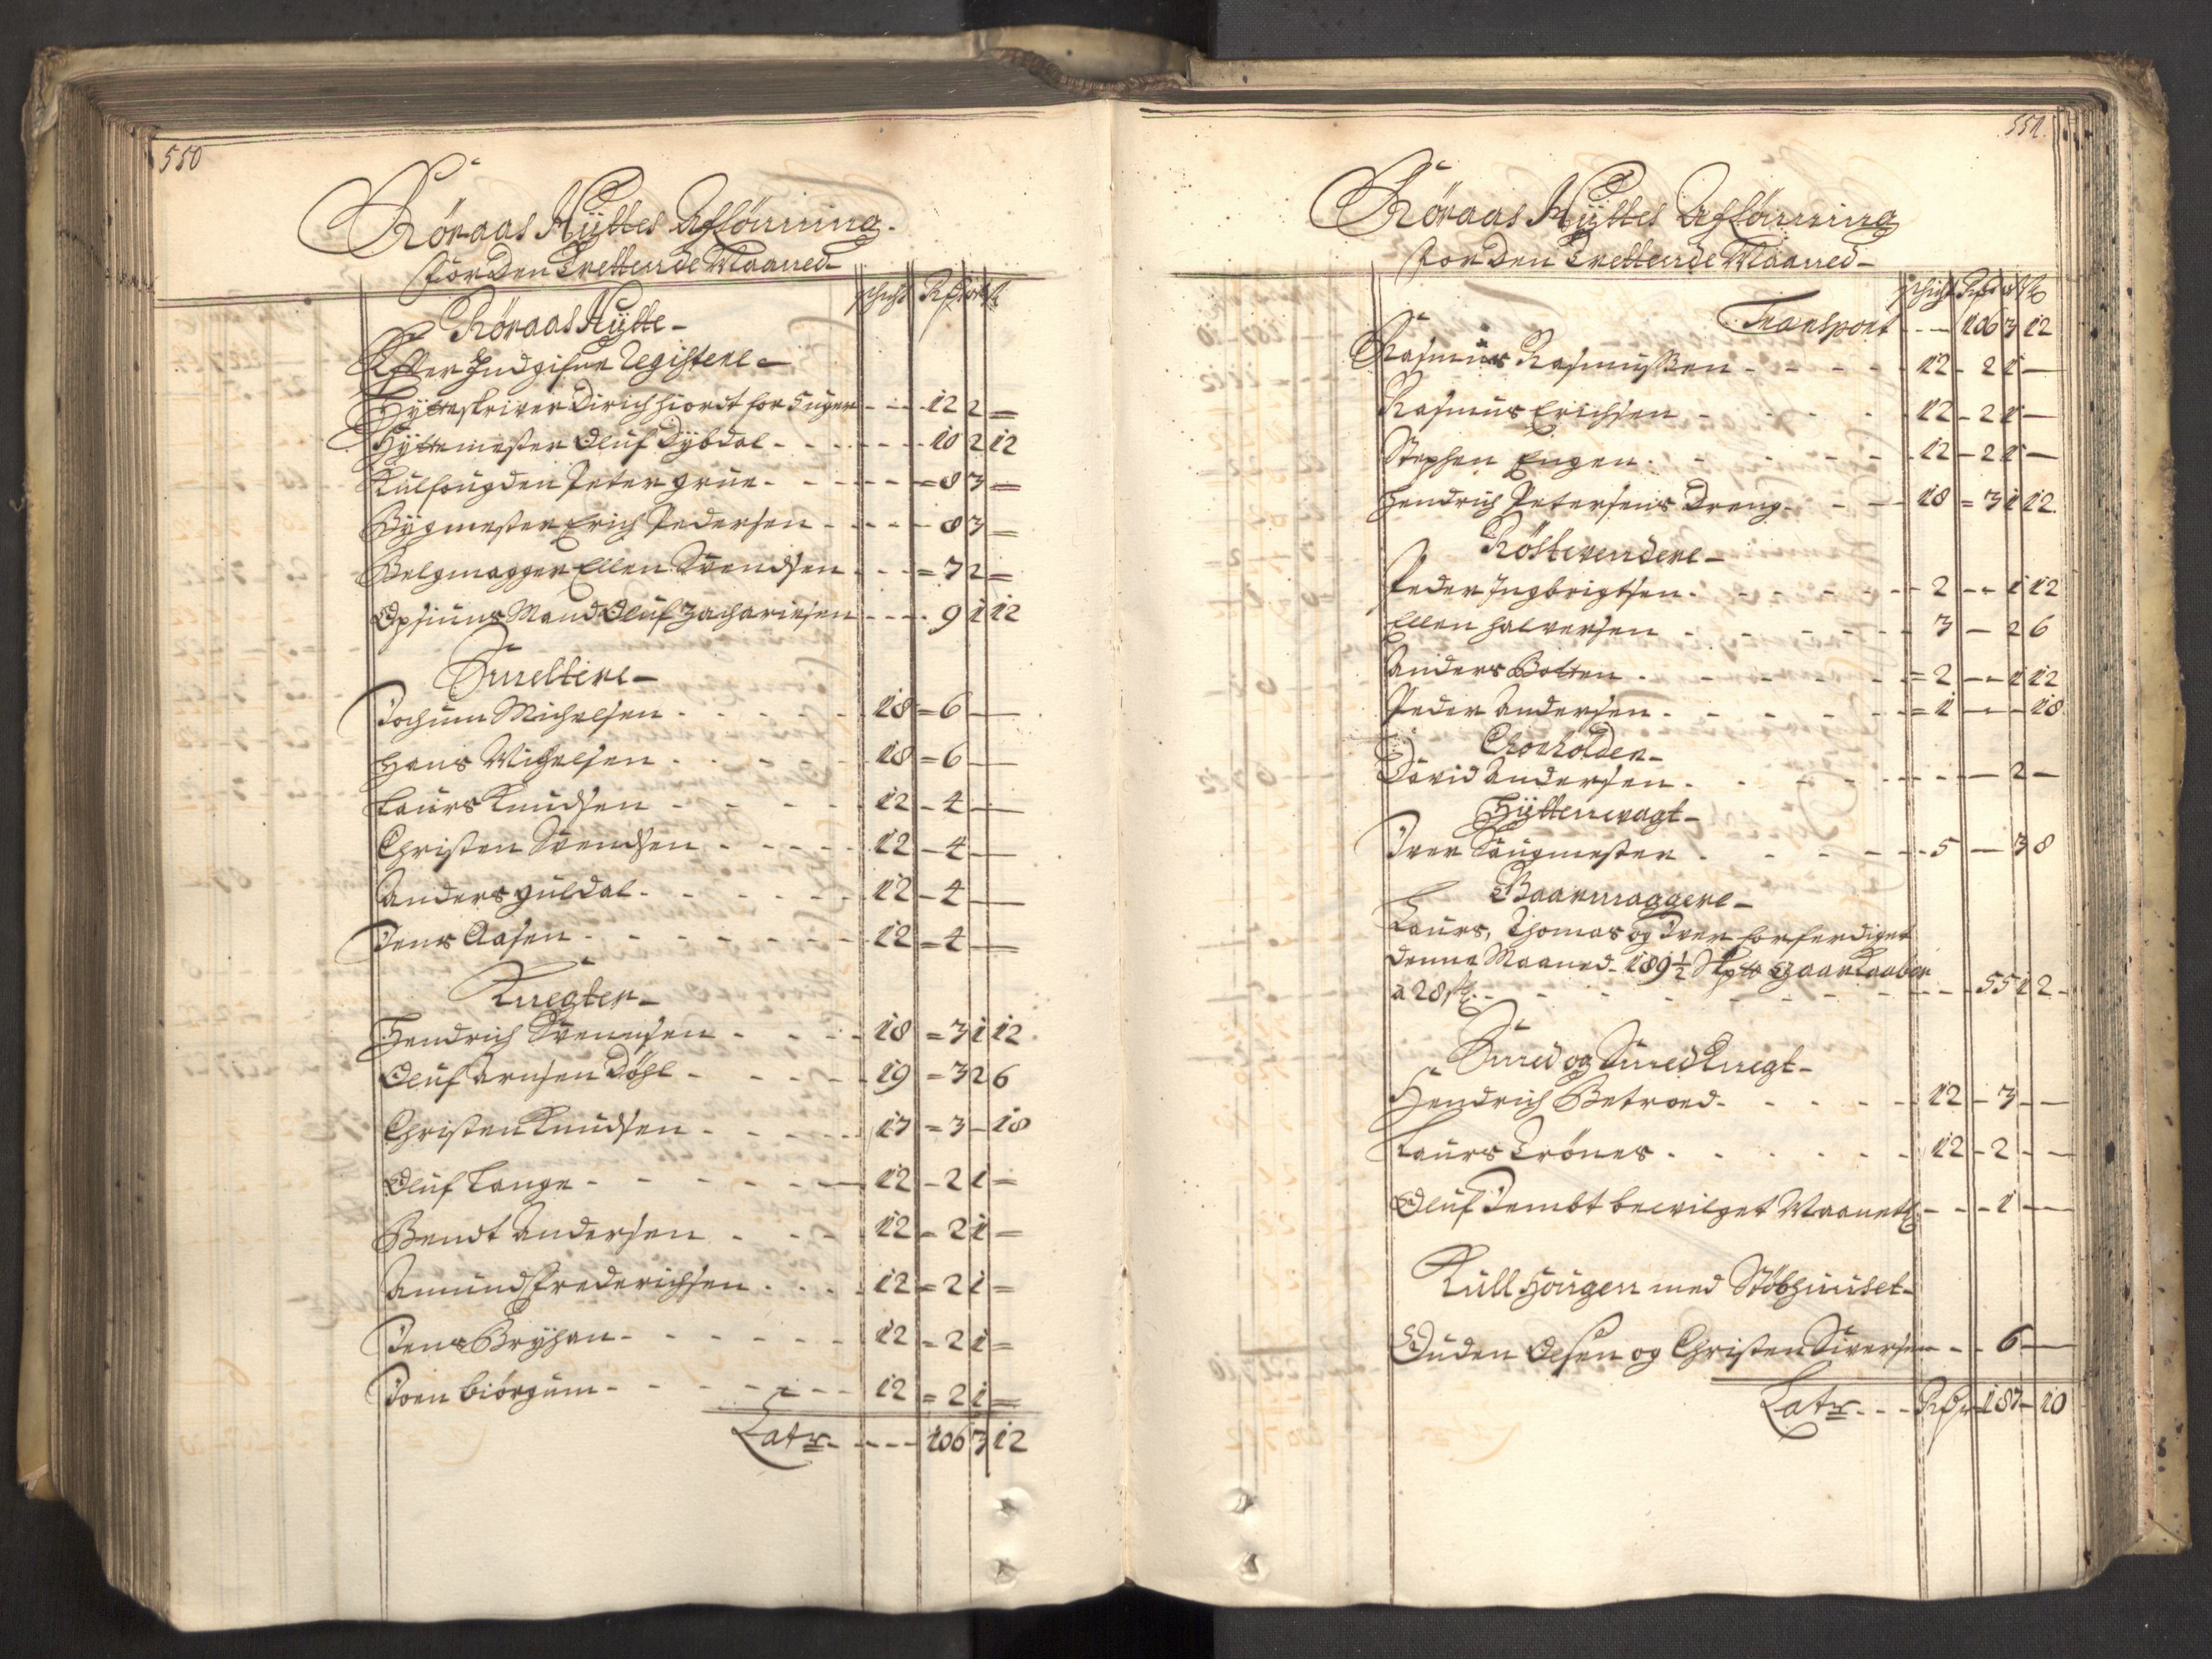 550
Röraas Hyttes Aflönning
for Den Trettende Maaned
schicht Rdr ort ß
Röraas Hytte
Efter Indgifne Registere
Hytteskriver Dirich Hiordt for 5 uger - - - 12 2 =
Hyttemester Oluf Dybdal - - - - 10 2 12
Kulfougden Peter Grue - - - - = 8 3 =
Bygmester Erich Pedersen - - - - 8 3 =
Belgmagger Ellen Svendsen - - - = 7 2 =
Opsiuns Mand Oluf Zachariesen - - - - 9 1 12
Smeltere
Jochum Michelsen - - - - 18 = 6 —
Hans Michelsen - - - - 18 = 6 —
Laurs Knudsen - - - - 12 - 4 —
Christen Svendsen - - - - 12 - 4 —
Anders Guldal - - - - 12 - 4 —
Jens Aasen - - - - 12 = 4 —
Knegter
Hendrich Svennsen - - - - 18 = 3 1 12
Oluf Arnsen Döhl - - - - 19 = 3 2 6
Christen Knudsen - - - - 17 = 3 - 18
Oluf Lange - - - - 12 - 2 1 =
Bendt Andersen - - - - 12 - 2 1 =
Amund Frederichsen - - - - 12 = 2 1 =
Jens Bryhan - - - - 12 - 2 1 =
Joen Biörgum - - - - 12 = 2 1 =
Latr - - - - 106 3 12
551
Röraas Hyttes Aflönning
for Den Trettende Maaned
schicht Rdr ort ß
Transport - - 106 3 12
Rasmus Rasmussen - - - - 12 - 2 1 —
Rasmus Erichsen - - - - 12 - 2 1 —
Stephen Engen - - - - 12 - 2 1 —
Hendrich Petersens Dreng - - - 18 = 3 1 12
Röstevendere
Peder Ingbrigtsen - - - - 2 - - 1 12
Ellen Halvorsen - - - - 3 — 2 6
Anders Bolten - - - - = 2 - - 1 12
Peder Andersen - - - - = 1 - - - 18
Chorholder
David Andersen - - - - — 2 —
Hyttenvagt
Iver Saugmester - - - - 5 — 3 8
Gaarmaggere
Laurs, Thomas og Iver forferdiget
denne Maaned 189 1/2 Skp Gaar Kaaber
a 28 ß - - - - 55 1 2 -
Smed og Smed Knegt
Hendrich Betroed - - - - 12 - 3 - —
Laurs Trönes - - - - 12 - 2 - -
Oluf Tembt bevilget Maanetl - - - 1 - —
Kull Hougen med Stöbhuuset
Ouden Olsen og Christen Siversen - - 6 —
Latr - - - Rdr 187 - 10